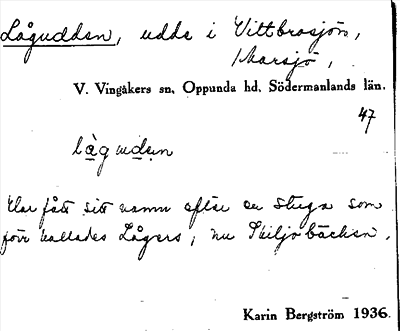 Lågudden, udde i Vittbrosjön,
Marsjö,
V. Vingåkers sn, Oppunda hd, Södermanlands län.
47
lågudən
Har fått sitt namn efter en stuga som
förr kallades Lågers, nu Skiljobäcken.
Karin Bergström 1936.